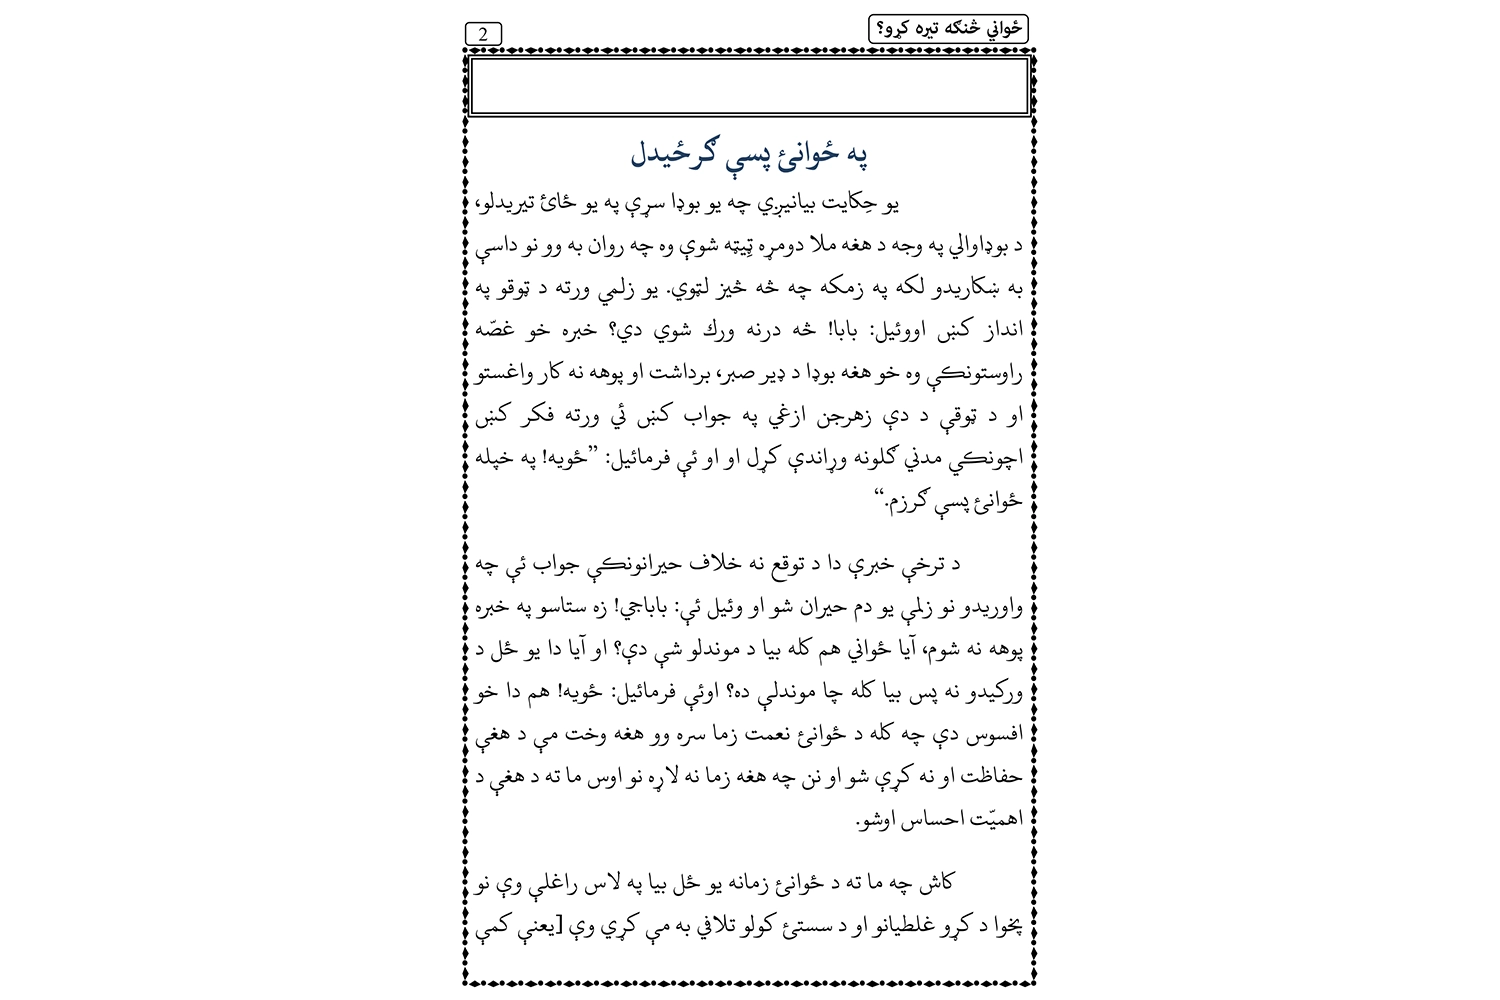 ځواني څنګه تیره کړو؟
2
په ځوانئ پسې ګرځیدل
یو حِکایت بیانیږي چه یو بوډا سړې په یو ځائ تیریدلو،
د بوډاوالي په وجه د هغه ملا دومره ټِیټه شوې وه چه روان به وو نو داسې
به ښکاریدو لکه په زمکه چه څه څیز لټوي. یو زلمي ورته د ټوقو په
انداز کښ اووئیل: بابا! څه درنه ورك شوي دي؟ خبره خو غصّه
راوستونکې وه خو هغه بوډا د ډیر صبر، برداشت او پوهه نه کار واغستو
او د ټوقې د دې زهرجن ازغي په جواب کښ ئې ورته فکر کښ
اچونکي مدني ګلونه وړاندې کړل او او ئې فرمائیل: ”ځویه! په خپله
ځوانئ پسې ګرزم.“
د ترخې خبرې دا د توقع نه خلاف حیرانونکې جواب ئې چه
واوریدو نو زلمې یو دم حیران شو او وئیل ئې: باباجي! زه ستاسو په خبره
پوهه نه شوم، آیا ځواني هم کله بیا د موندلو شې دې؟ او آیا دا یو ځل د
ورکیدو نه پس بیا کله چا موندلې ده؟ اوئې فرمائیل: ځویه! هم دا خو
افسوس دې چه کله د ځوانئ نعمت زما سره وو هغه وخت مې د هغې
حفاظت او نه کړې شو او نن چه هغه زما نه لاړه نو اوس ما ته د هغې د
اهمیّت احساس اوشو.
کاش چه ما ته د ځوانئ زمانه یو ځل بیا په لاس راغلې وې نو
پخوا د کړو غلطیانو او د سستئ کولو تلافي به مې کړي وې [یعنې کمې